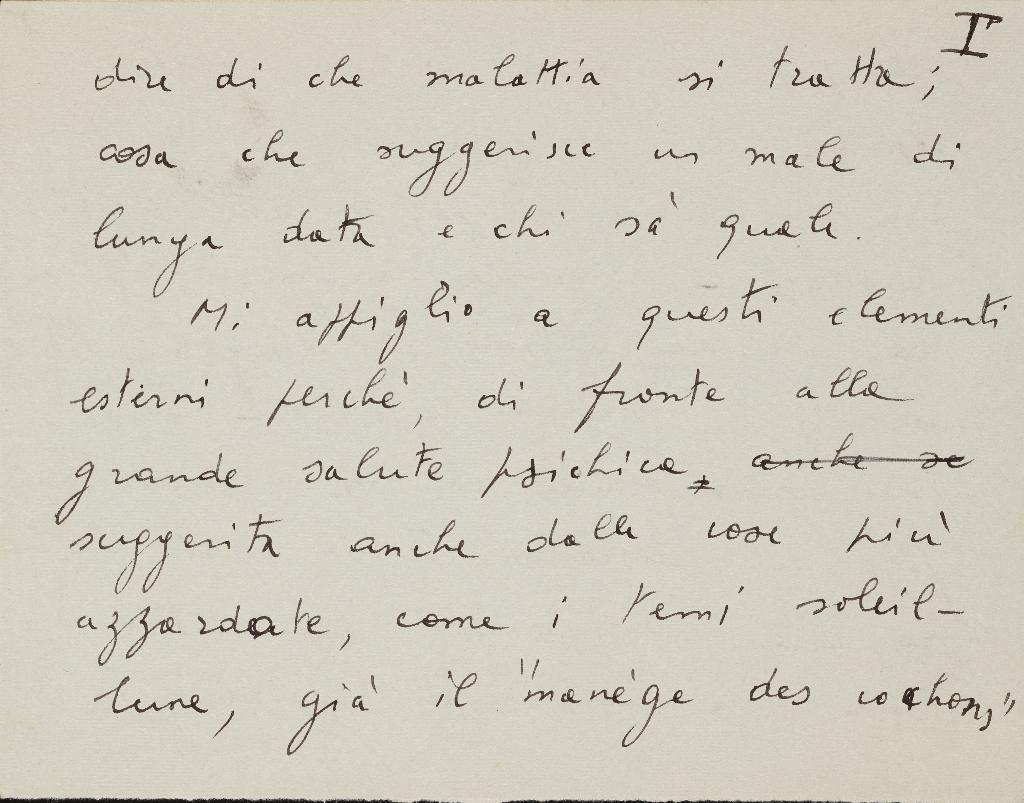 I
dire di che malattia si tratta;
cosa che suggerisce un male di
lunga data e chi sà quale.
Mi appiglio a questi elementi
esterni perchè, di fronte alla
grande salute psichica, ~~anche se~~
suggerita anche dalle cose più
azzardate, come i temi soleil-
lune, già il "manège des cochons,"